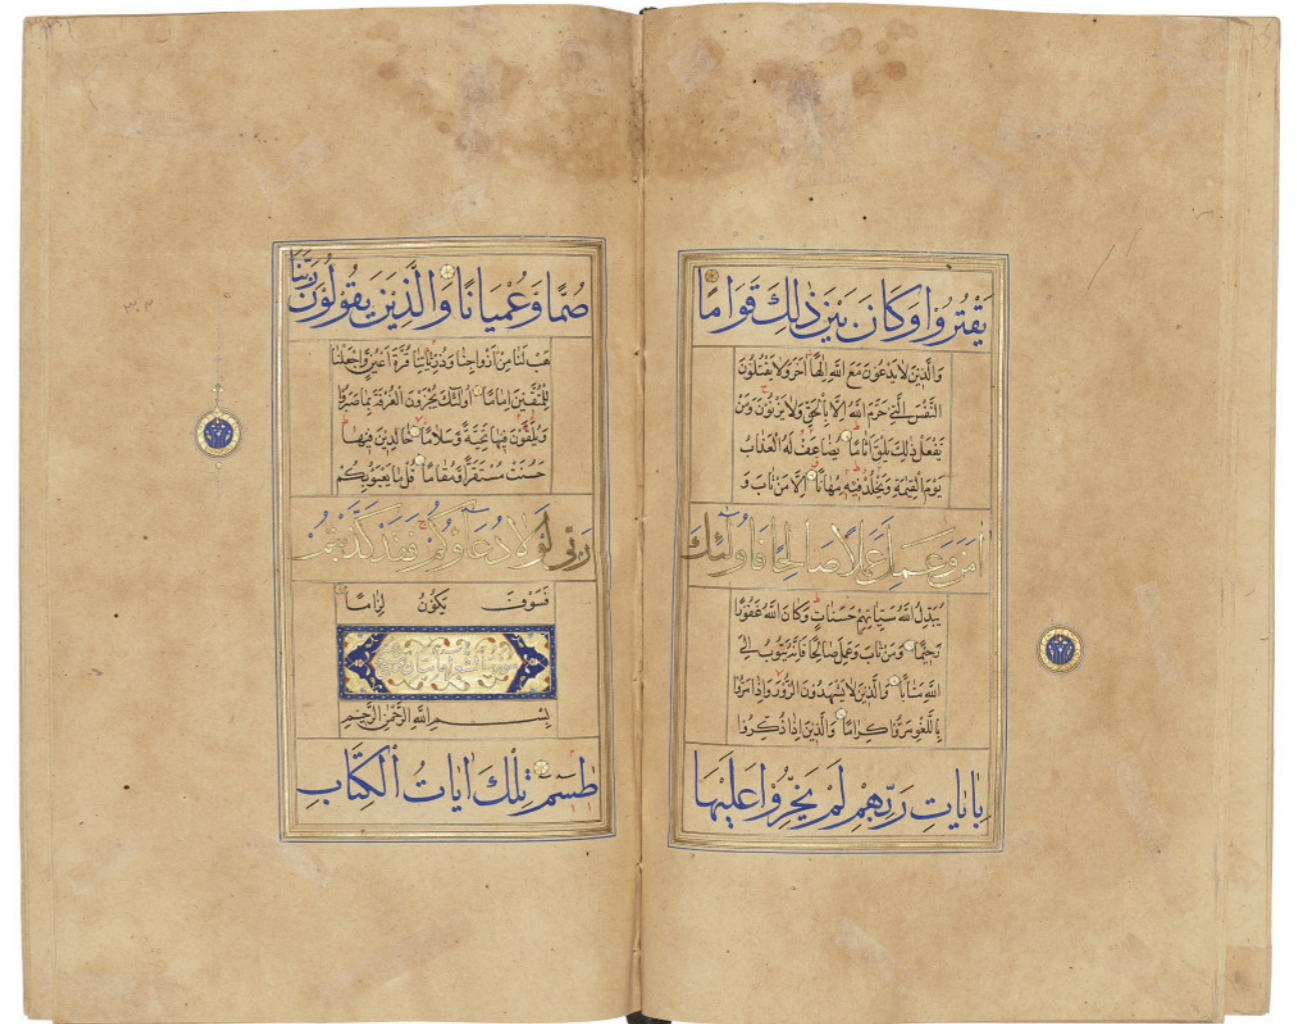 يَقْتُرُوا وَكَانَ بَيْنَ ذٰلِكَ قَوَامًا
وَالَّذِينَ لَا يَدْعُونَ مَعَ اللّٰهِ اِلٰهًا اٰخَرَ وَلَا يَقْتُلُونَ
النَّفْسَ الَّتِي حَرَّمَ اللّٰهُ اِلَّا بِالْحَقِّ وَلَا يَزْنُونَ وَمَنْ
يَفْعَلْ ذٰلِكَ يَلْقَ اَثَامًا يُضَاعَفْ لَهُ الْعَذَابُ
يَوْمَ الْقِيٰمَةِ وَيَخْلُدْ فِيهِ مُهَانًا اِلَّا مَنْ تَابَ وَ
اٰمَنَ وَعَمِلَ عَمَلًا صَالِحًا فَاُولٰئِكَ
يُبَدِّلُ اللّٰهُ سَيِّاٰتِهِمْ حَسَنَاتٍ وَكَانَ اللّٰهُ غَفُورًا
رَحِيمًا وَمَنْ تَابَ وَعَمِلَ صَالِحًا فَاِنَّهُ يَتُوبُ اِلَى
اللّٰهِ مَتَابًا وَالَّذِينَ لَا يَشْهَدُونَ الزُّورَ وَاِذَا مَرُّوا
بِاللَّغْوِ مَرُّوا كِرَامًا وَالَّذِينَ اِذَا ذُكِّرُوا
بِاٰيَاتِ رَبِّهِمْ لَمْ يَخِرُّوا عَلَيْهَا
صُمًّا وَعُمْيَانًا وَالَّذِينَ يَقُولُونَ رَبَّنَا
هَبْ لَنَا مِنْ اَزْوَاجِنَا وَذُرِّيَّاتِنَا قُرَّةَ اَعْيُنٍ وَاجْعَلْنَا
لِلْمُتَّقِينَ اِمَامًا اُولٰئِكَ يُجْزَوْنَ الْغُرْفَةَ بِمَا صَبَرُوا
وَيُلَقَّوْنَ فِيهَا تَحِيَّةً وَسَلَامًا خَالِدِينَ فِيهَا
حَسُنَتْ مُسْتَقَرًّا وَمُقَامًا قُلْ مَا يَعْبَؤُا بِكُمْ
رَبِّي لَوْلَا دُعَاؤُكُمْ فَقَدْ كَذَّبْتُمْ
فَسَوْفَ يَكُونُ لِزَامًا
بِسْمِ اللّٰهِ الرَّحْمٰنِ الرَّحِيمِ
طٰسٓمٓ تِلْكَ اٰيَاتُ الْكِتَابِ